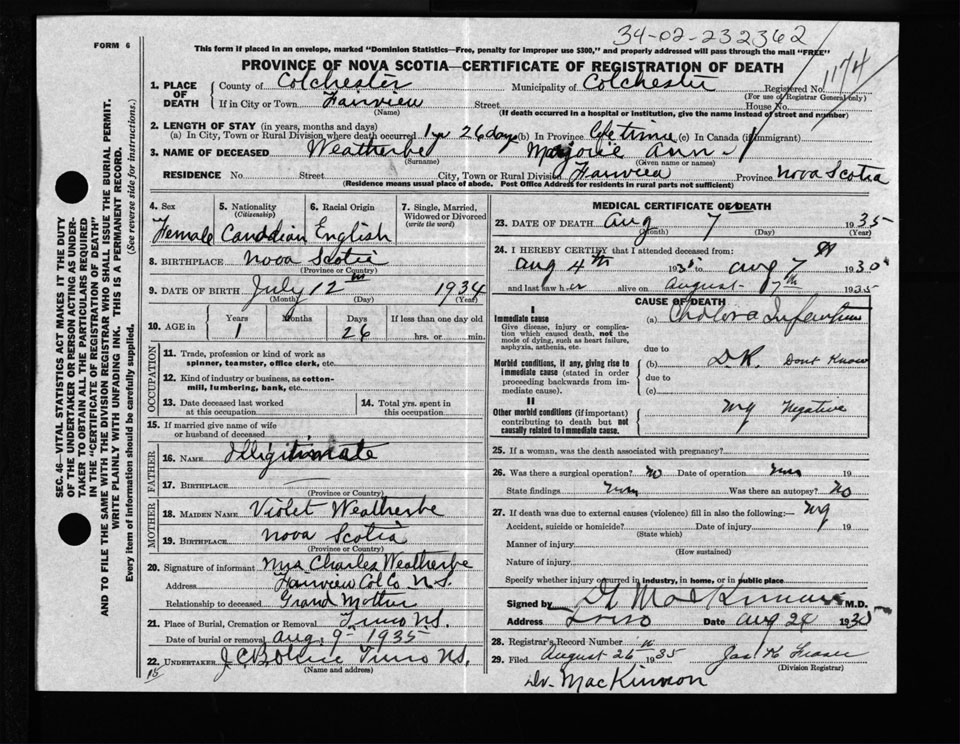 34-02-232362
FORM 6
1174
This form if placed in an envelope, marked "Dominion Statistics—Free, penalty for improper use $300," and properly addressed will pass through the mail "FREE"
PROVINCE OF NOVA SCOTIA—CERTIFICATE OF REGISTRATION OF DEATH
1. PLACE OF DEATH County of Colchester Municipality of Colchester Registered No.
(For use of Registrar General only)
If in City or Town Fanview Street House No.
(Name) (If death occurred in a hospital or institution, give the name instead of street and number)
2. LENGTH OF STAY (in years, months and days)
(a) In City, Town or Rural Division where death occurred 1 yr 26 days (b) In Province Lifetime (c) In Canada (if immigrant)
3. NAME OF DECEASED Weatherbe Marjorie Ann
(Surname) (Given name or names)
RESIDENCE No. Street City, Town or Rural Division Fanview Province Nova Scotia
(Residence means usual place of abode. Post Office Address for residents in rural parts not sufficient)
4. Sex 5. Nationality (Citizenship) 6. Racial Origin 7. Single, Married, Widowed or Divorced (write the word)
Female Canadian English
8. BIRTHPLACE Nova Scotia
(Province or Country)
9. DATE OF BIRTH July 12th 1934
(Month) (Day) (Year)
10. AGE in Years Months Days If less than one day old
1 26 hrs. or min.
OCCUPATION
11. Trade, profession or kind of work as spinner, teamster, office clerk, etc.
12. Kind of industry or business, as cotton-mill, lumbering, bank, etc.
13. Date deceased last worked at this occupation 14. Total yrs. spent in this occupation
15. If married give name of wife or husband of deceased
FATHER
16. NAME Illigitimate
17. BIRTHPLACE
(Province or Country)
MOTHER
18. MAIDEN NAME Violet Weatherbe
19. BIRTHPLACE Nova Scotia
(Province or Country)
20. Signature of informant Mrs Charles Weatherbe
Address Fanview Col Co. N.S.
Relationship to deceased Grand Mother
21. Place of Burial, Cremation or Removal Truro N.S.
Date of burial or removal Aug. 9 - 1935
22. UNDERTAKER Truro N.S.
(Name and address)
15
MEDICAL CERTIFICATE OF DEATH
23. DATE OF DEATH Aug 7 1935
(Month) (Day) (Year)
24. I HEREBY CERTIFY that I attended deceased from:
Aug 4th 193 to Aug 7th 193
and last saw her alive on August 7th 1935
CAUSE OF DEATH
Immediate cause (a) Cholera Infantum
Give disease, injury or complication which caused death, not the mode of dying, such as heart failure, asphyxia, asthenia, etc.
due to
Morbid conditions, if any, giving rise to immediate cause (stated in order proceeding backwards from immediate cause). (b) D.K. Dont Know
due to
(c)
II
Other morbid conditions (if important) contributing to death but not causally related to immediate cause. Negative
25. If a woman, was the death associated with pregnancy?
26. Was there a surgical operation? No Date of operation 19
State findings Was there an autopsy? No
27. If death was due to external causes (violence) fill in also the following:— 19
Accident, suicide or homicide? Date of injury
(State which)
Manner of injury
(How sustained)
Nature of injury
Specify whether injury occurred in industry, in home, or in public place
Signed by MacKinnon M.D.
Address Truro Date Aug 24 193
28. Registrar's Record Number
29. Filed August 26 1935 Jas K Fraser
(Division Registrar)
Dr. MacKinnon
SEC. 46—VITAL STATISTICS ACT MAKES IT THE DUTY
OF THE UNDERTAKER OR PERSON ACTING AS UNDER-
TAKER TO OBTAIN ALL THE PARTICULARS REQUIRED
IN THE "CERTIFICATE OF REGISTRATION OF DEATH"
AND TO FILE THE SAME WITH THE DIVISION REGISTRAR WHO SHALL ISSUE THE BURIAL PERMIT.
WRITE PLAINLY WITH UNFADING INK. THIS IS A PERMANENT RECORD.
Every item of information should be carefully supplied. (See reverse side for instructions.)